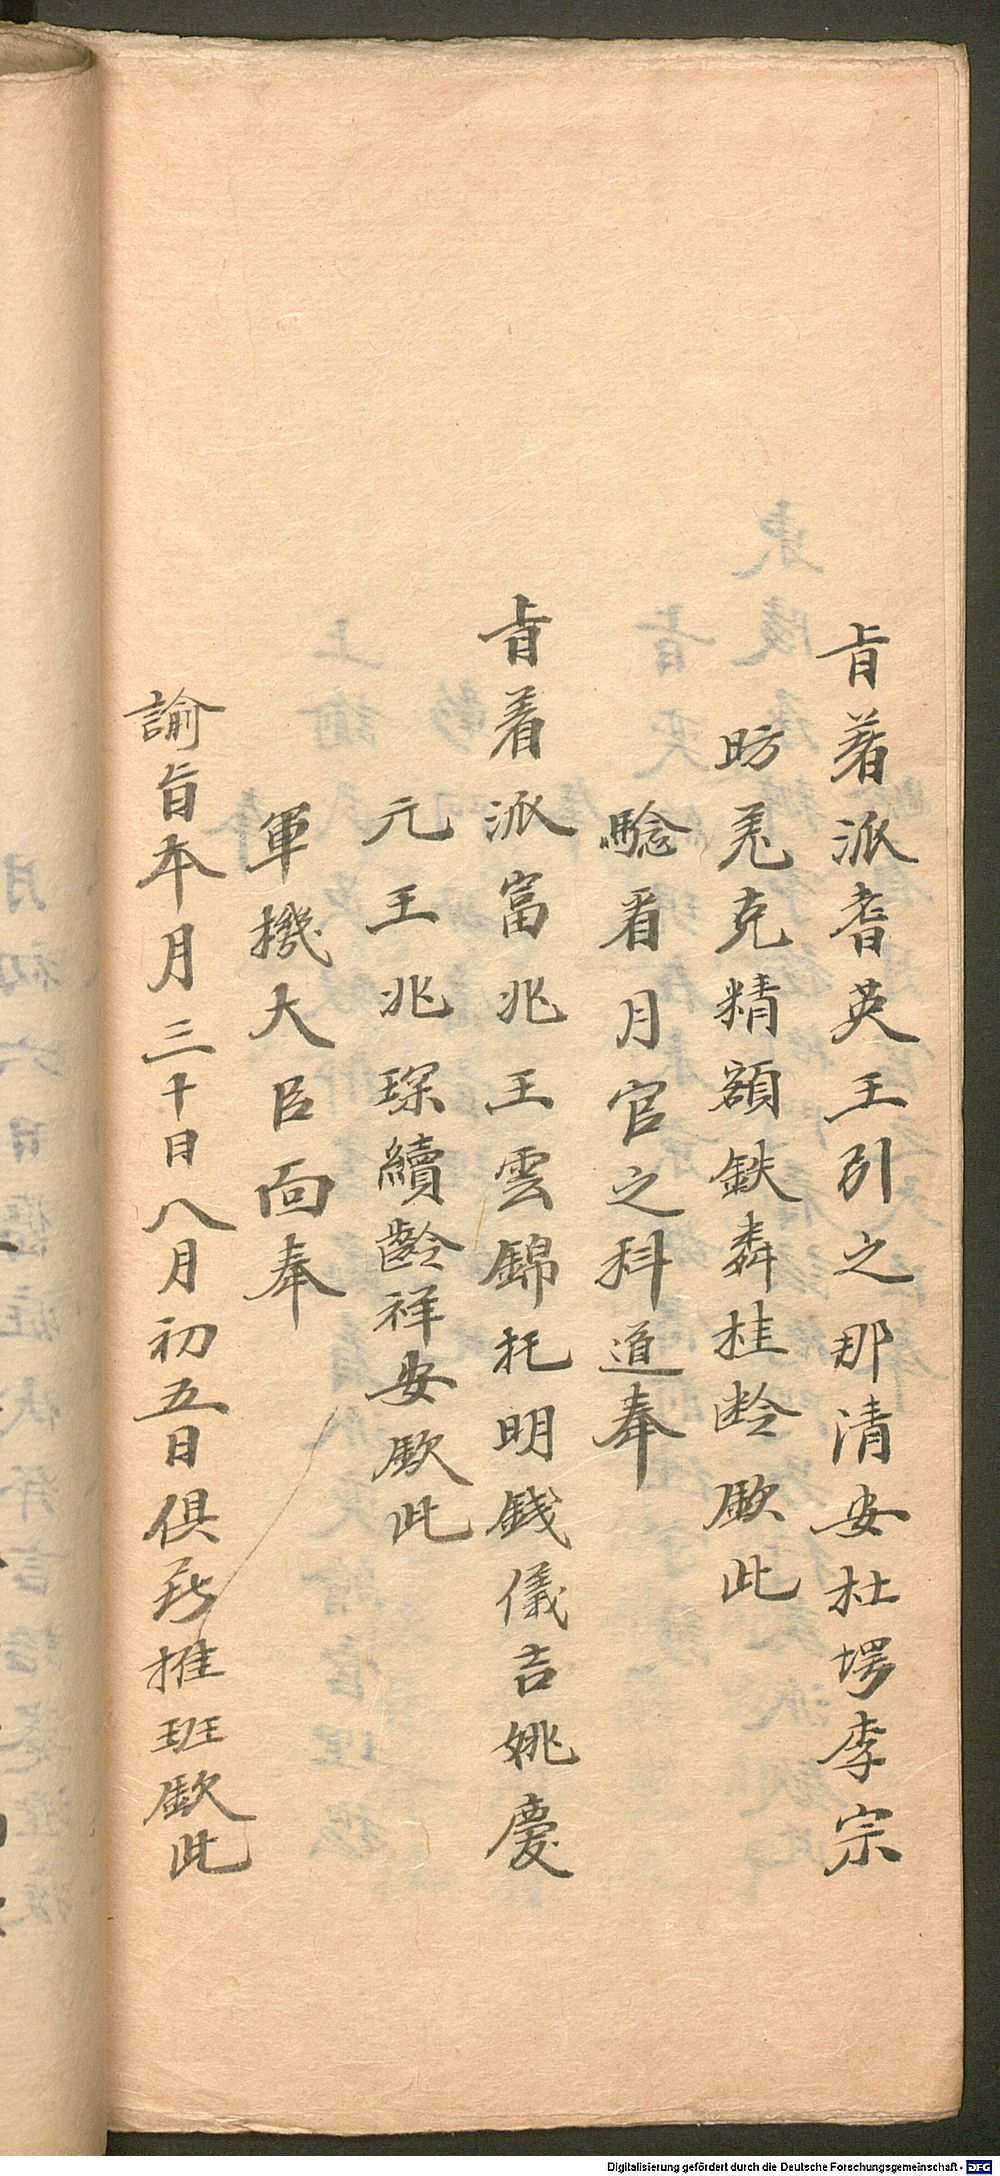 旨着派耆英王引之那清安杜堮李宗
昉恩克精額鉄麟桂齡欽此
驗看月官之科道奉
旨着派富兆王雲錦托明錢儀吉姚慶
元王兆琛續齡祥安欽此
軍機大臣面奉
諭旨本年月三十日八月初五日俱着推班欽此
Digitalisierung gefördert durch die Deutsche Forschungsgemeinschaft - DFG